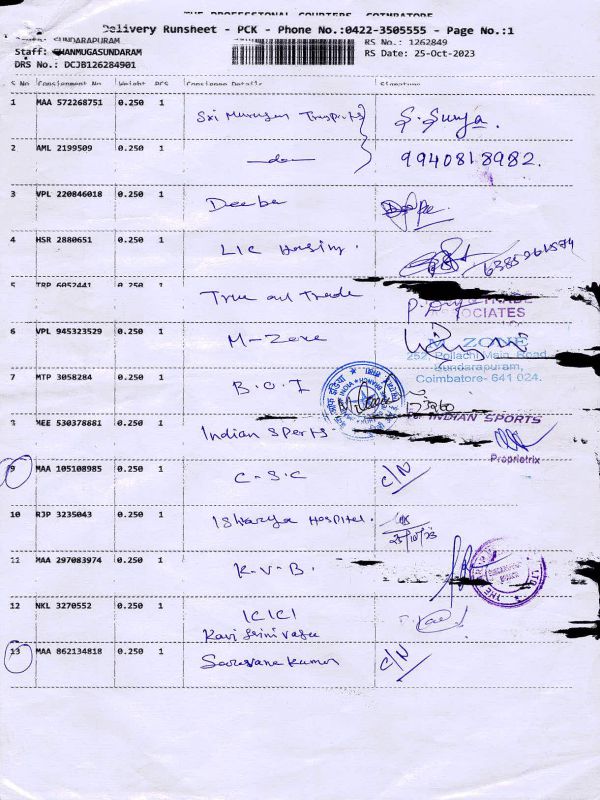 THE PROFESSIONAL COURIERS, COIMBATORE
Delivery Runsheet - PCK - Phone No.:0422-3505555 - Page No.:1
SUNDARAPURAM
RS No.: 1262849
Staff: SHANMUGASUNDARAM
RS Date: 25-Oct-2023
DRS No.: DCJB126284901
S No Consignment No Weight PCS Consignee Details Signature
1 MAA 572268751 0.250 1 Sri Murugan S. Surya.
2 AML 2199509 0.250 1 -do- 9940818982.
3 VPL 220846018 0.250 1 Deeba
4 HSR 2880651 0.250 1 LIC Housing. 6385261574
5 TRP 6052441 0.250 1 True and Trade
TRADE
ASSOCIATES
6 VPL 945323529 0.250 1 M-Zone
M ZONE
252, Pollachi Main Road
Sundarapuram,
Coimbatore- 641 024.
7 MTP 3058284 0.250 1 B.O.I
8 MEE 530378881 0.250 1 Indian Sports.
For INDIAN SPORTS
Proprietrix
9 MAA 105108985 0.250 1 C-S.C C/N
10 RJP 3235043 0.250 1 Iswarya Hospital.
25/10/23
11 MAA 297083974 0.250 1 K-V-B.
12 NKL 3270552 0.250 1 ICICI
Ravi Srinivasa
13 MAA 862134818 0.250 1 Saravana Kumar C/N